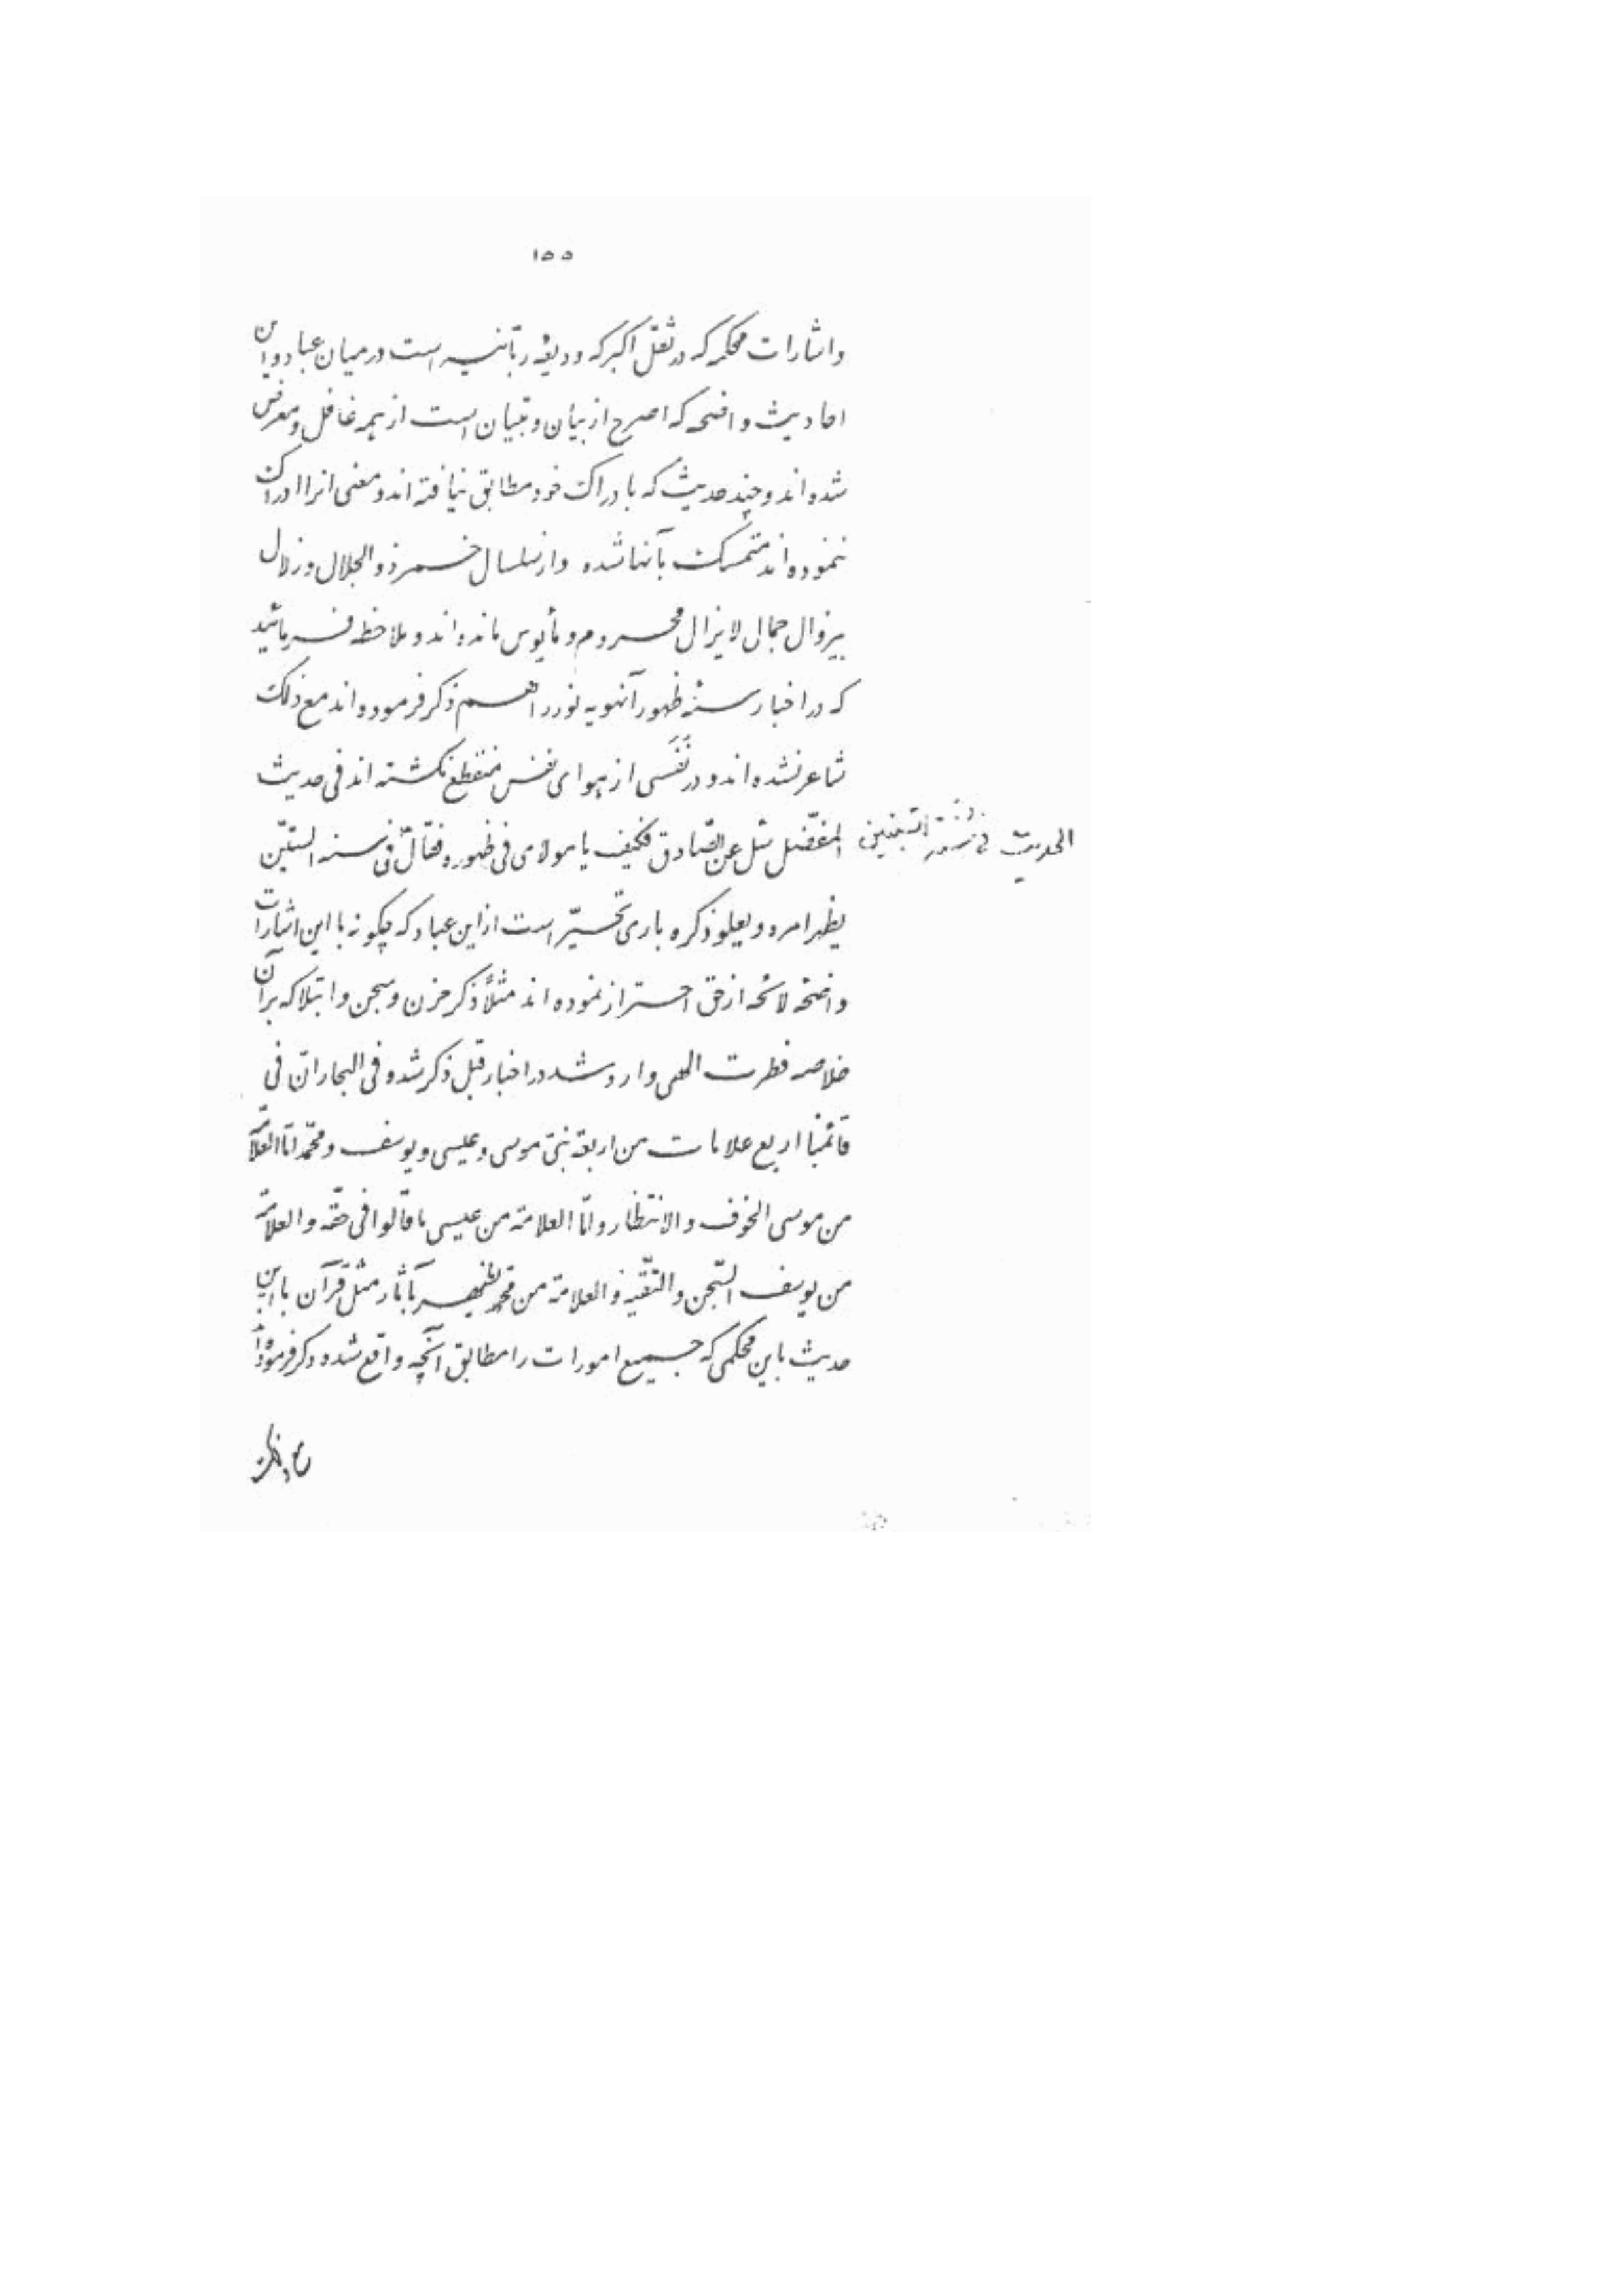 ۱۵۵
واشارات محکمه که در ثقل اکبر که ودیعهٔ ربّانیه است در میان عباد و این
احادیث واضحه که اصرح از بیان و تبیان است از همه غافل و معرض
شده‌اند و چند حدیث که با دراک خود مطابق نیافته اند و معنی انرا ادراک
ننموده‌اند متمسک بآنها شده و از سلسال خمر ذو الجلال و زلال
بیزوال جمال لا یزال محروم و مأیوس مانده‌اند و ملاحظه فرمائید
که در اخبار سنهٔ ظهور آنهویه نور را هم ذکر فرموده‌اند مع ذلک
شاعر نشده‌اند و در نَفَسی از هوای نفس منقطع نگشته اند فی حدیث
المفضّل سئل عن الصّادق فکیف یا مولای فی ظهوره فقال فی سنه الستّین
الحدیث فی سنة الستین
یظهر امره و یعلو ذکره باری تحیّر است از این عباد که چگونه با این اشارات
واضحهٔ لائحه از حق احتراز نموده اند مثلاً ذکر حزن و سجن و ابتلا که بر آن
خلاصه فطرت الهی وارد شد در اخبار قبل ذکر شده فی البحار انّ فی
قائمنا اربع علامات من اربعة نبیّ موسی و عیسی و یوسف و محمّد امّا العلامة
من موسی الخوف و الانتظار و امّا العلامة من عیسی ما قالوا فی حقّه و العلامة
من یوسف السّجن و التّقیّه و العلامة من محمّد یظهر بآثار مثل قرآن با این
حدیث باین محکمی که جمیع امورات را مطابق آنچه واقع شده ذکر فرموده‌اند
مع ذلک